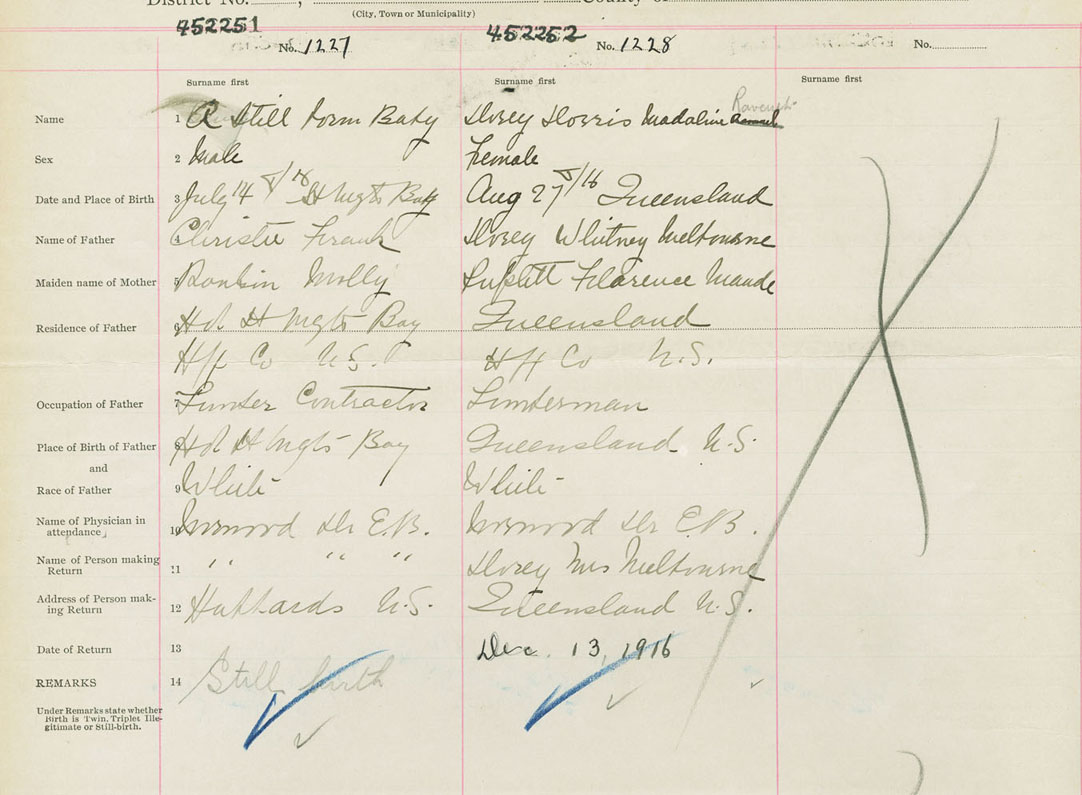 District No. , County of
(City, Town or Municipality)
452251 452252
No. 1227 No. 1228 No.
Surname first Surname first Surname first
Name 1 A Still Born Baby Dorey Dorris Madaline
Sex 2 Male Female
Date and Place of Birth 3 July 14 /16 St Mgts Bay Aug 27/16 Queensland
Name of Father 4 Christie Frank Dorey Whitney Melbourne
Maiden name of Mother 5 Molly Florence Maude
Residence of Father 6 Hd St Mgts Bay Queensland
Hfx Co N.S. Hfx Co N.S.
Occupation of Father 7 Lumber Contractor Lumberman
Place of Birth of Father 8 Hd St Mgts Bay Queensland N.S
and
Race of Father 9 White White
Name of Physician in
attendance 10 Dr E.B. Dr E.B.
Name of Person making
Return 11 " " " Dorey Mrs Melbourne
Address of Person mak-
ing Return 12 Hubbards N.S. Queensland N.S.
Date of Return 13 Dec. 13, 1916
REMARKS 14 Still birth
Under Remarks state whether
Birth is Twin, Triplet Ille-
gitimate or Still-birth.